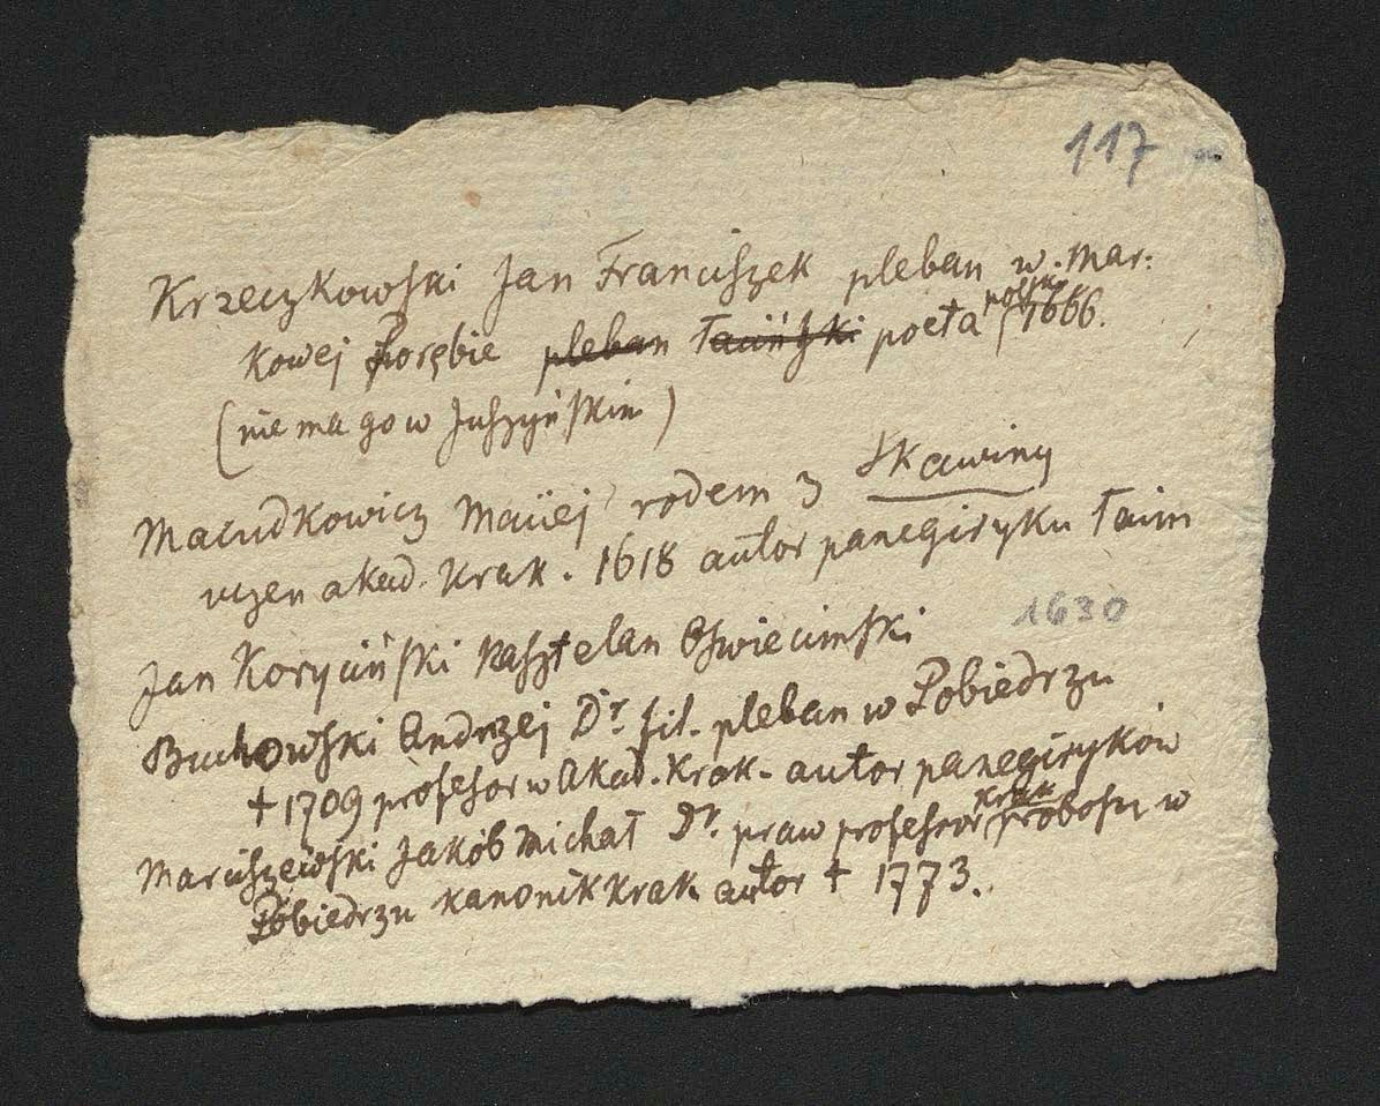 117
Krzeczkowski Jan Franciszek pleban w. Mar:
kowej Porębie pleban łaciński poeta polski 1666.
(nie ma go w Juszyńskim)
Macudkowicz Maciej rodem z Skawiny
uczen akad. Krak. 1618 autor panegiryku łacin
1630
Jan Koryciński kasztelan Oswiecimski
Buchowski Andrzej Dr. fil. pleban w Pobiedrzu
† 1709 profesor w Akad. Krak. autor panegiryków
Marciszewski Jakób Michał Dr. praw profesor krak proboszcz w
Pobiedrzu kanonik krak. autor † 1773.